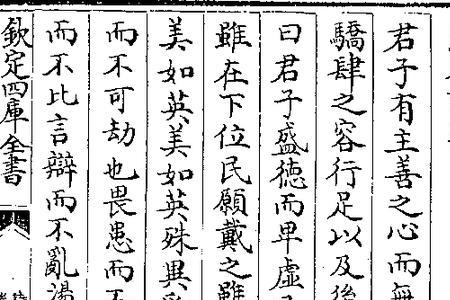 君子有主善之心而無
驕肆之容行足以及後
曰君子盛徳而卑虚
雖在下位民願戴之雖
美如英美如英殊異
而不可劫也畏患而不
而不比言辯而不亂湯
欽定四庫全書